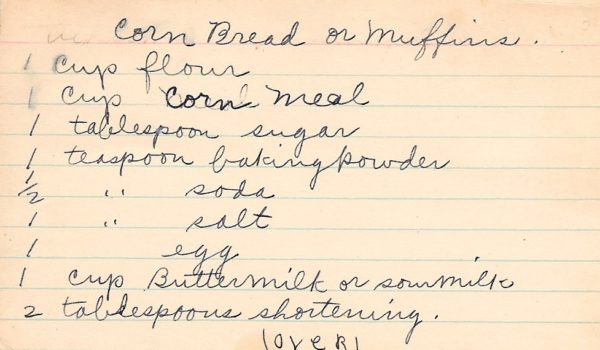 Corn Bread or Muffins.
1 cup flour
1 cup corn meal
1 tablespoon sugar
1 teaspoon baking powder
1/2 " soda
1 " salt
1 egg
1 cup Buttermilk or sour milk
2 tablespoons shortening.
(over)